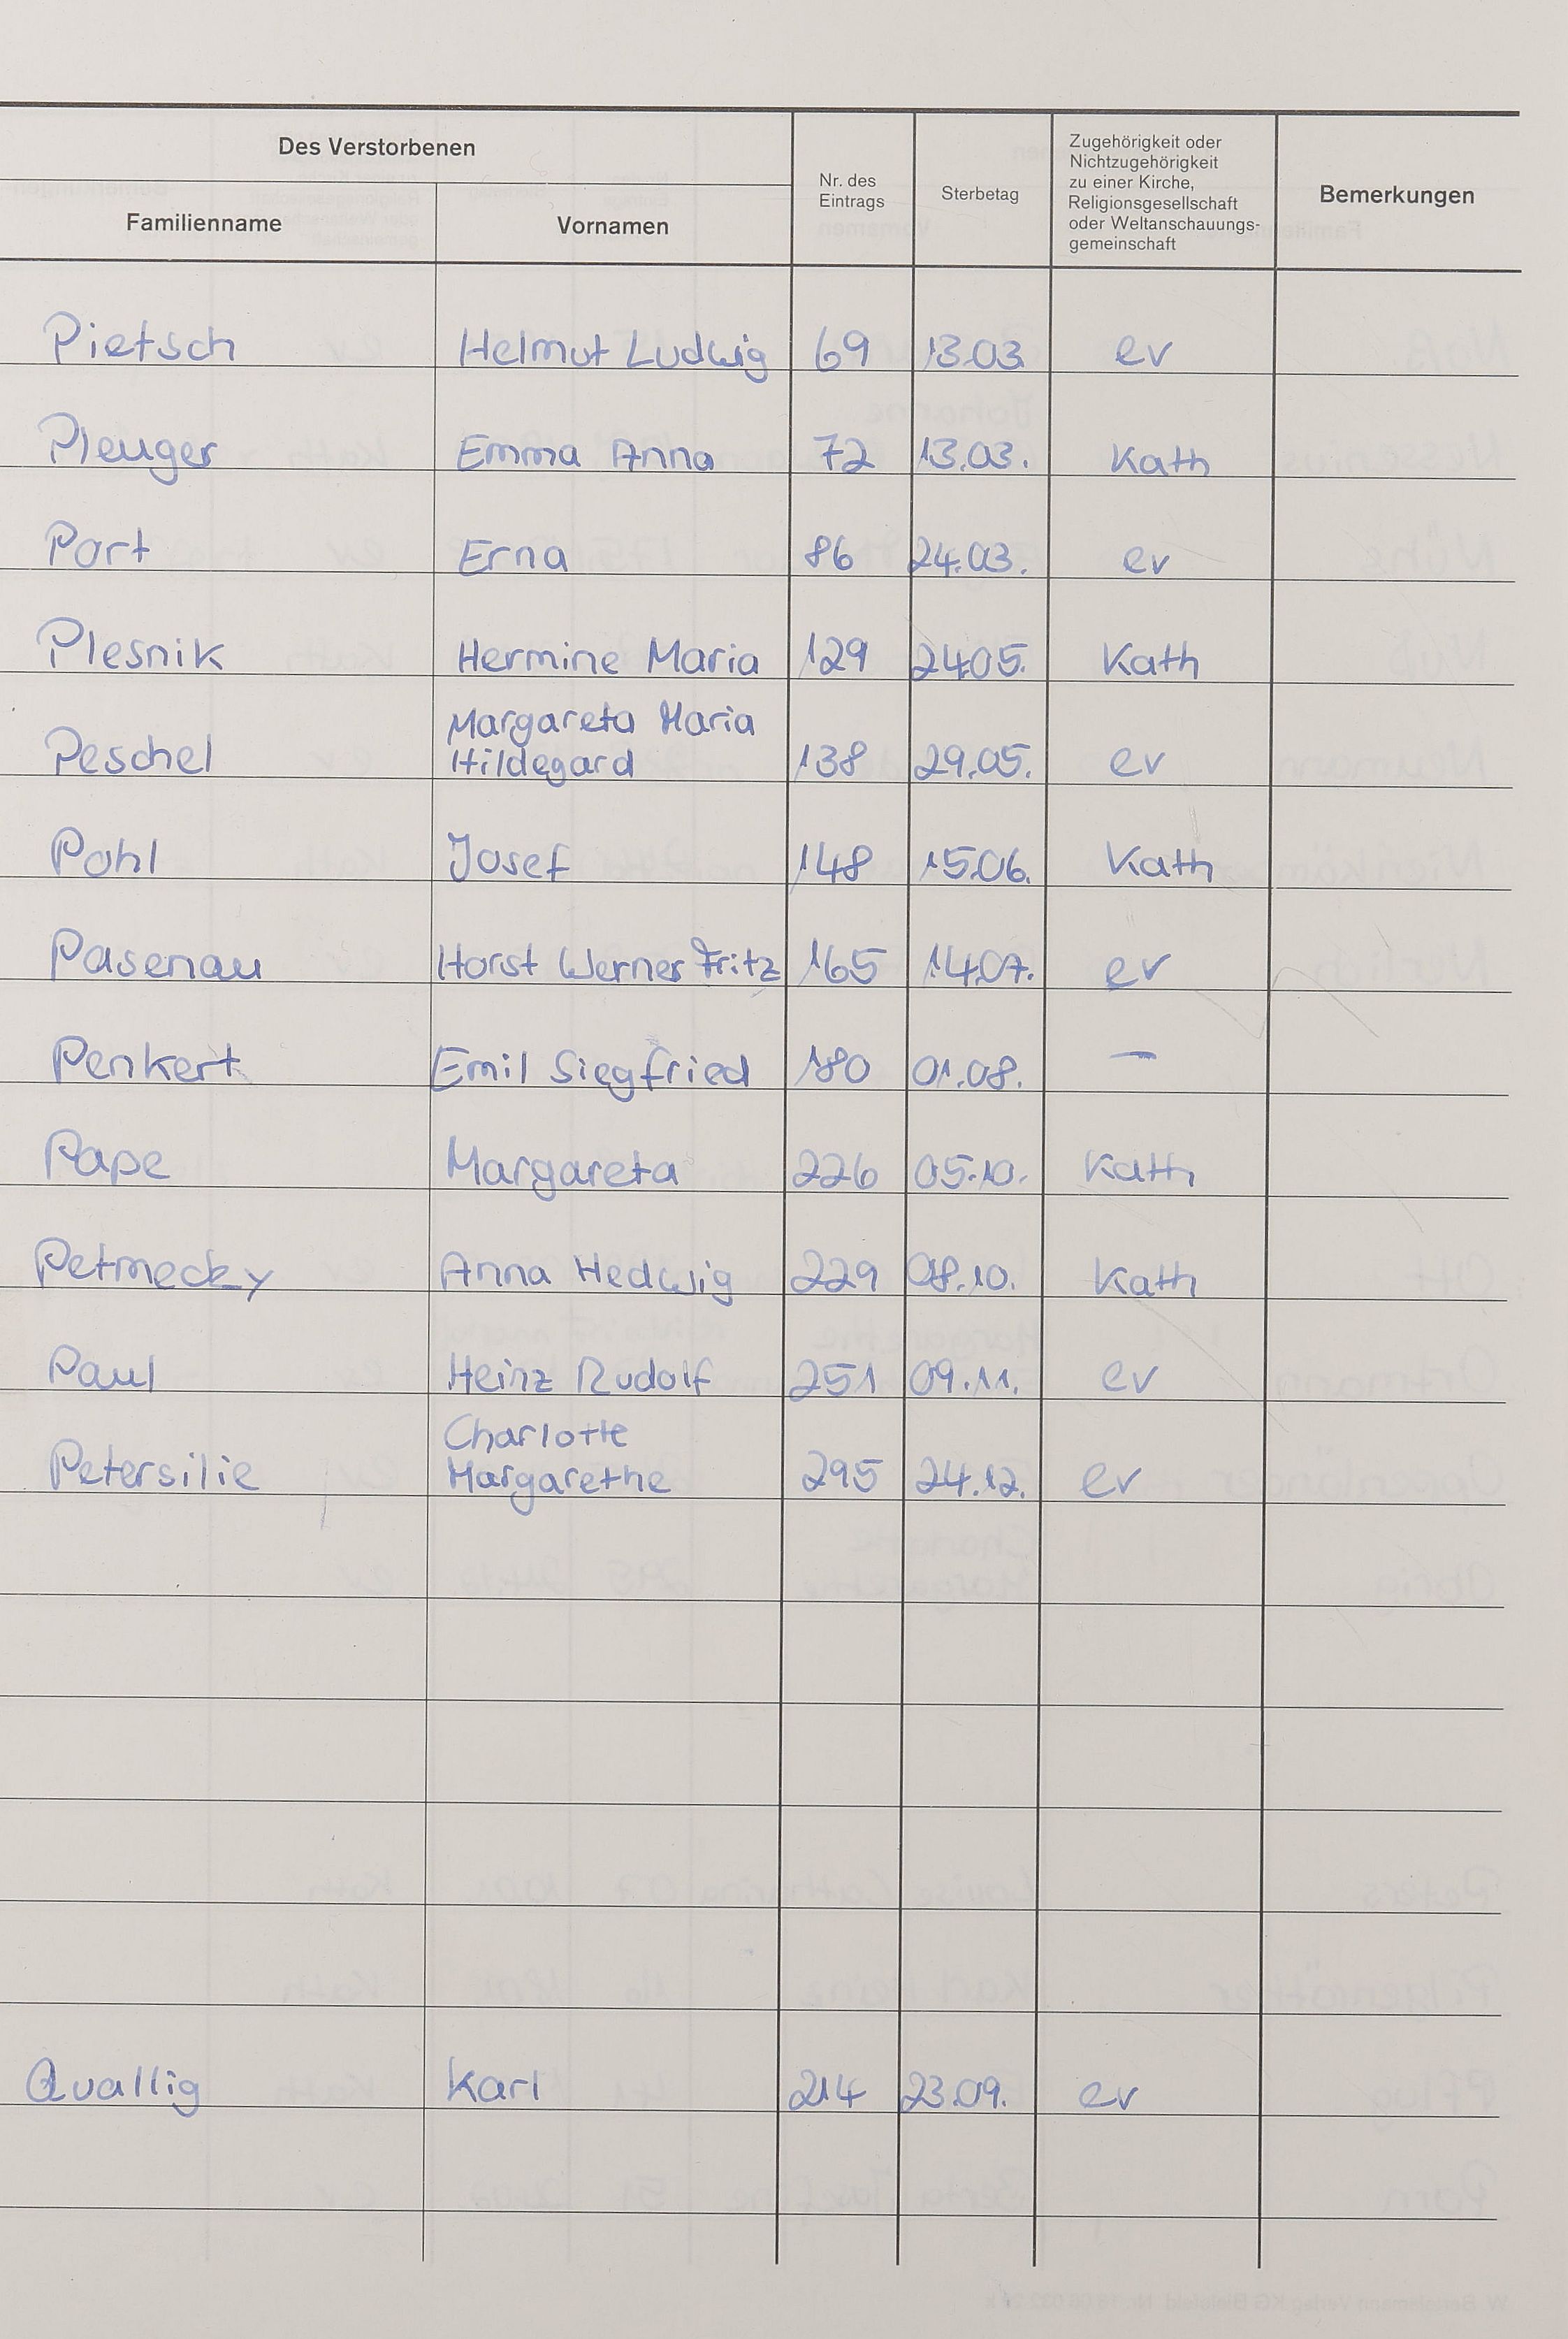 Des Verstorbenen
Familienname
Vornamen
Nr. des
Eintrags
Sterbetag
Zugehörigkeit oder
Nichtzugehörigkeit
zu einer Kirche,
Religionsgesellschaft
oder Weltanschauungs-
gemeinschaft
Bemerkungen
Pietsch Helmut Ludwig 69 13.03. ev
Pleuger Emma Anna 72 13.03. Kath
Port Erna 86 24.03. ev
Plesnik Hermine Maria 129 24.05. Kath
Margareta Maria
Peschel Hildegard 138 29.05. ev
Pohl Josef 148 15.06. Kath
Pasenau Horst Werner Fritz 165 14.07. ev
Penkert Emil Siegfried 180 01.08. —
Pape Margareta 226 05.10. Kath
Petmecky Anna Hedwig 229 08.10. Kath
Paul Heinz Rudolf 251 09.11. ev
Charlotte
Petersilie Margarethe 295 24.12. ev
Quallig Karl 214 23.09. ev